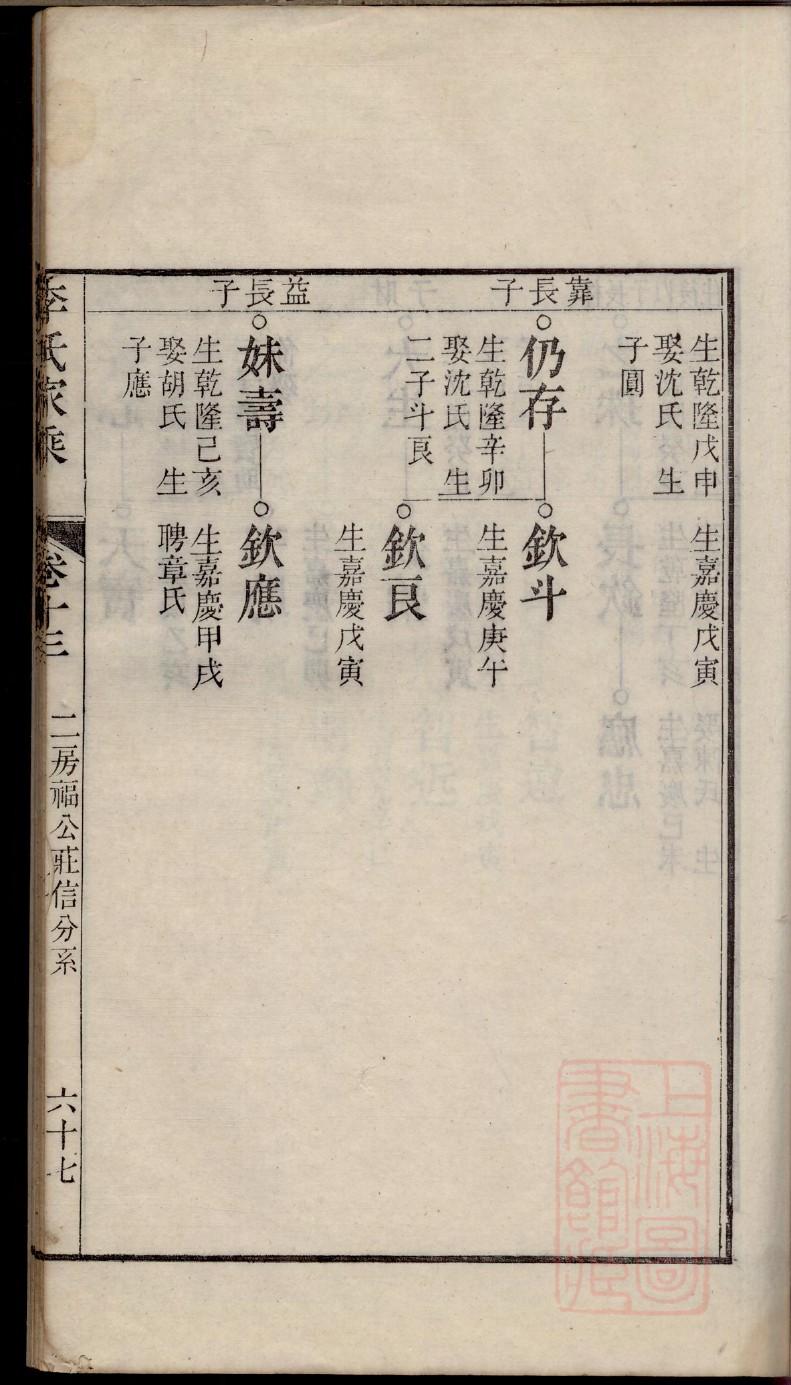 生乾隆戊申
娶沈氏 生
子圓
生嘉慶戊寅
靠長子
仍存
生乾隆辛卯
娶沈氏 生
二子斗良
欽斗
生嘉慶庚午
欽良
生嘉慶戊寅
益長子
妹壽
生乾隆己亥
娶胡氏 生
子應
欽應
生嘉慶甲戌
聘章氏
李氏家乘
卷十三
二房福公莊信分系
六十七
上海圖書館藏